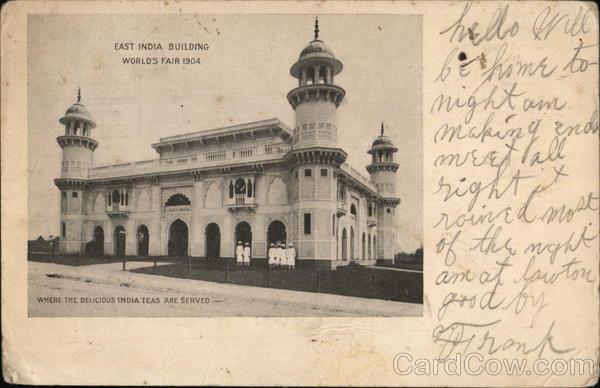 EAST INDIA BUILDING
WORLD'S FAIR 1904
WHERE THE DELICIOUS INDIA TEAS ARE SERVED —
hello Will
be home to-
night am
making ends
meet all
right it
rained most
of the night
am at lawton
good by
Frank
CardCow.com